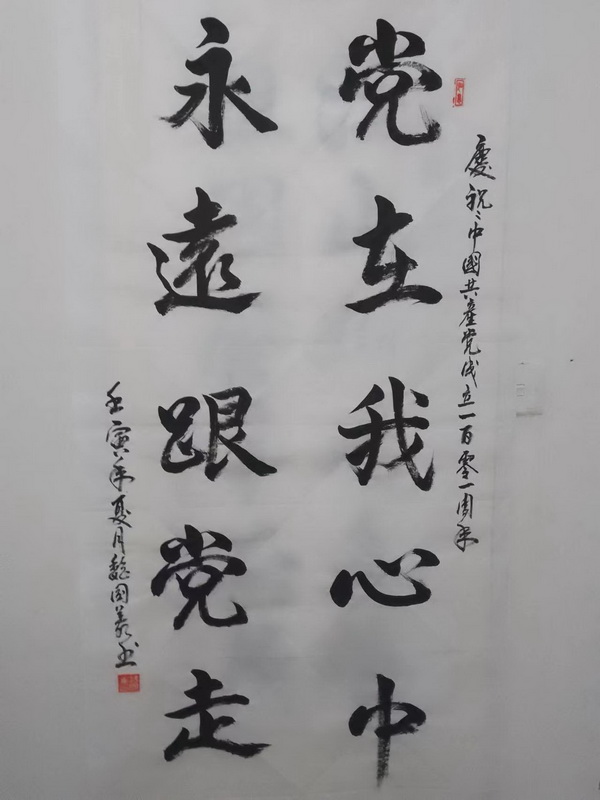 慶祝中國共產党成立一百零一周年
党在我心中
永遠跟党走
壬寅年夏月魏国義书